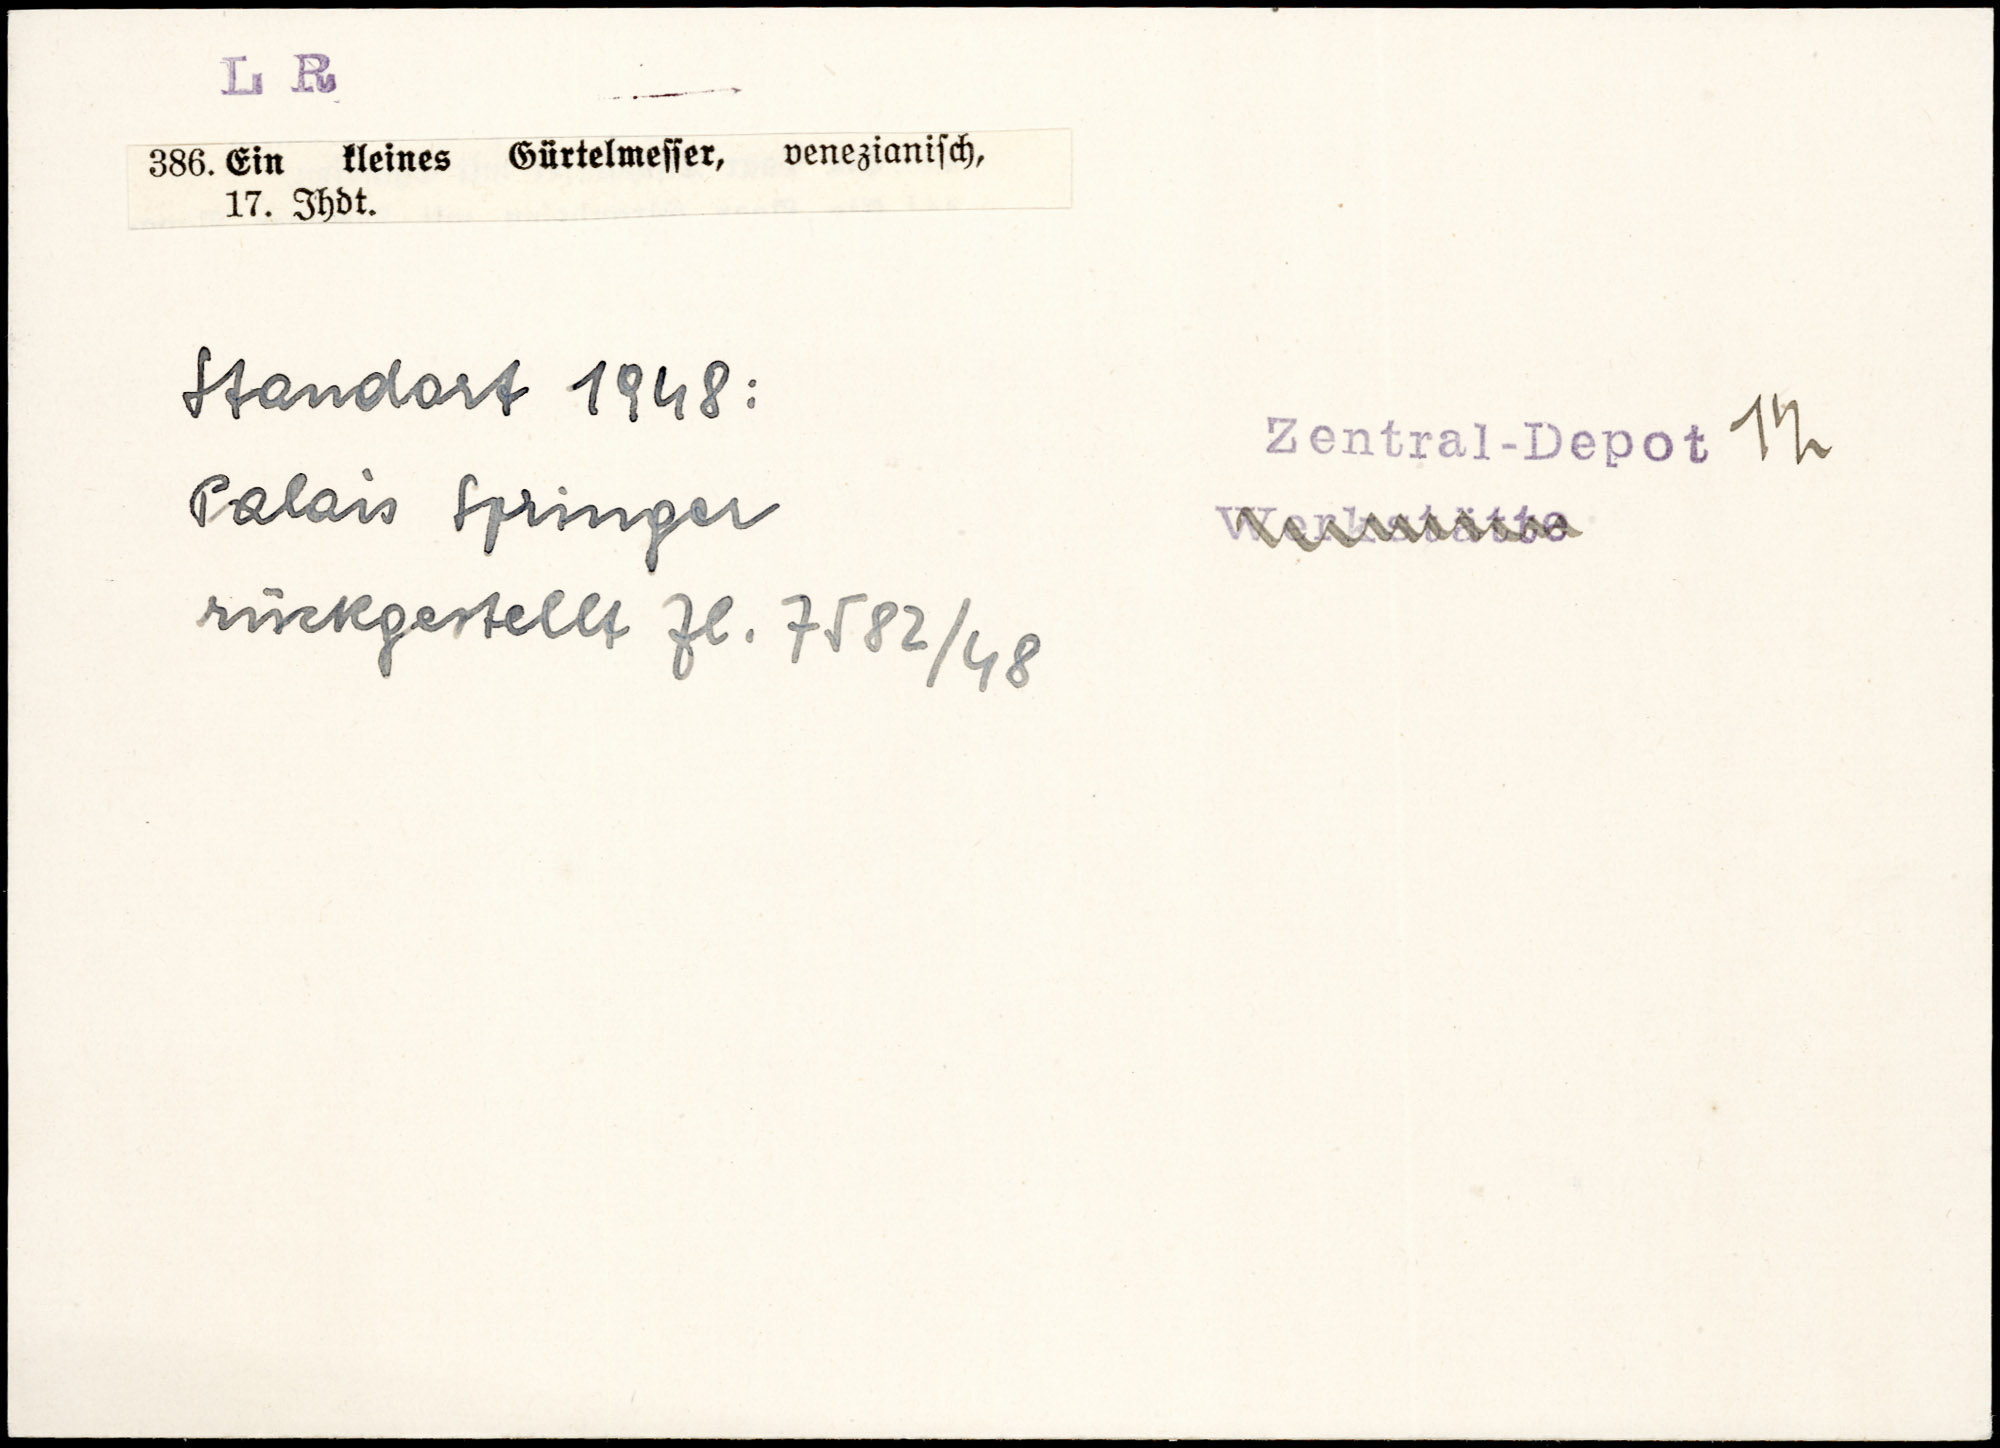 L R
386. Ein kleines Gürtelmeſſer, venezianiſch,
17. Jhdt.
Standort 1948:
Palais Springer
rückgestellt Zl. 7582/48
Zentral-Depot
Werkstätte